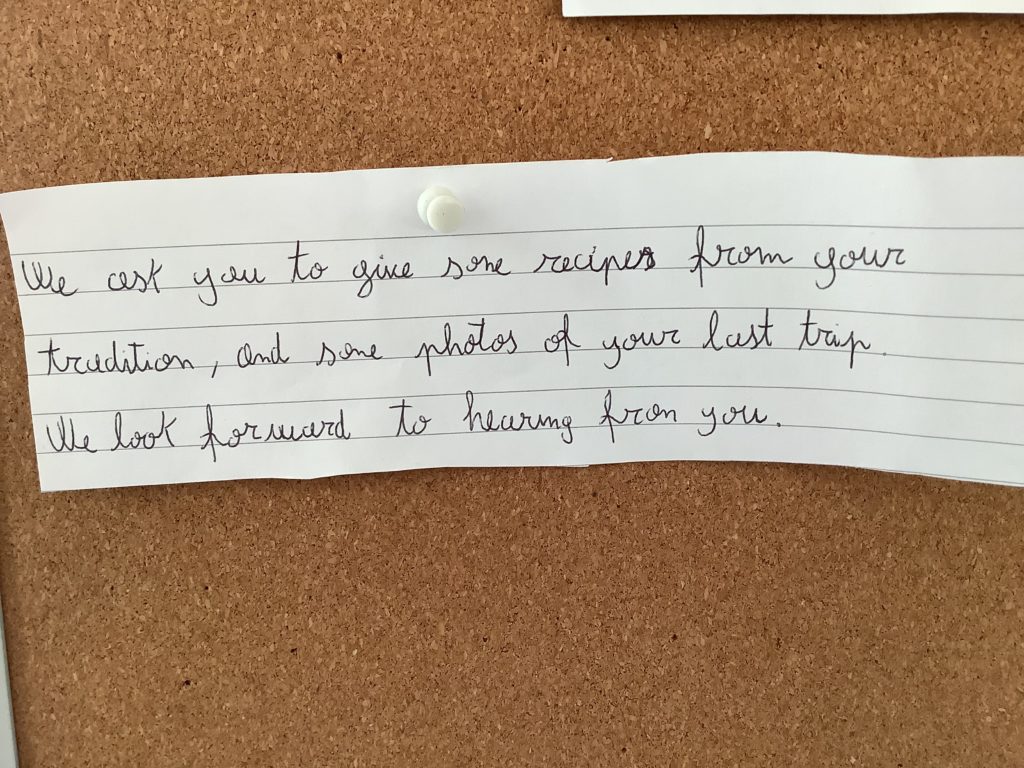 We ask you to give some recipes from your
tradition, and some photos of your last trip.
We look forward to hearing from you.